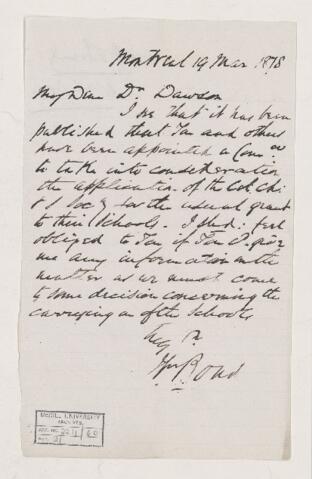 Montreal 19 Mar 1878
My Dear Dr Dawson
I see that it has been
published that You and others
have been appointed a Comee
to take into consideration
the application of the Col Ch
& S Socy for the usual grant
to their Schools. I shd. feel
obliged to You if You cd. give
me any information in the
matter as we must come
to some decision concerning the
carrying on of the Schools
Bond
McGILL UNIVERSITY
ARCHIVES
ACC. NO.